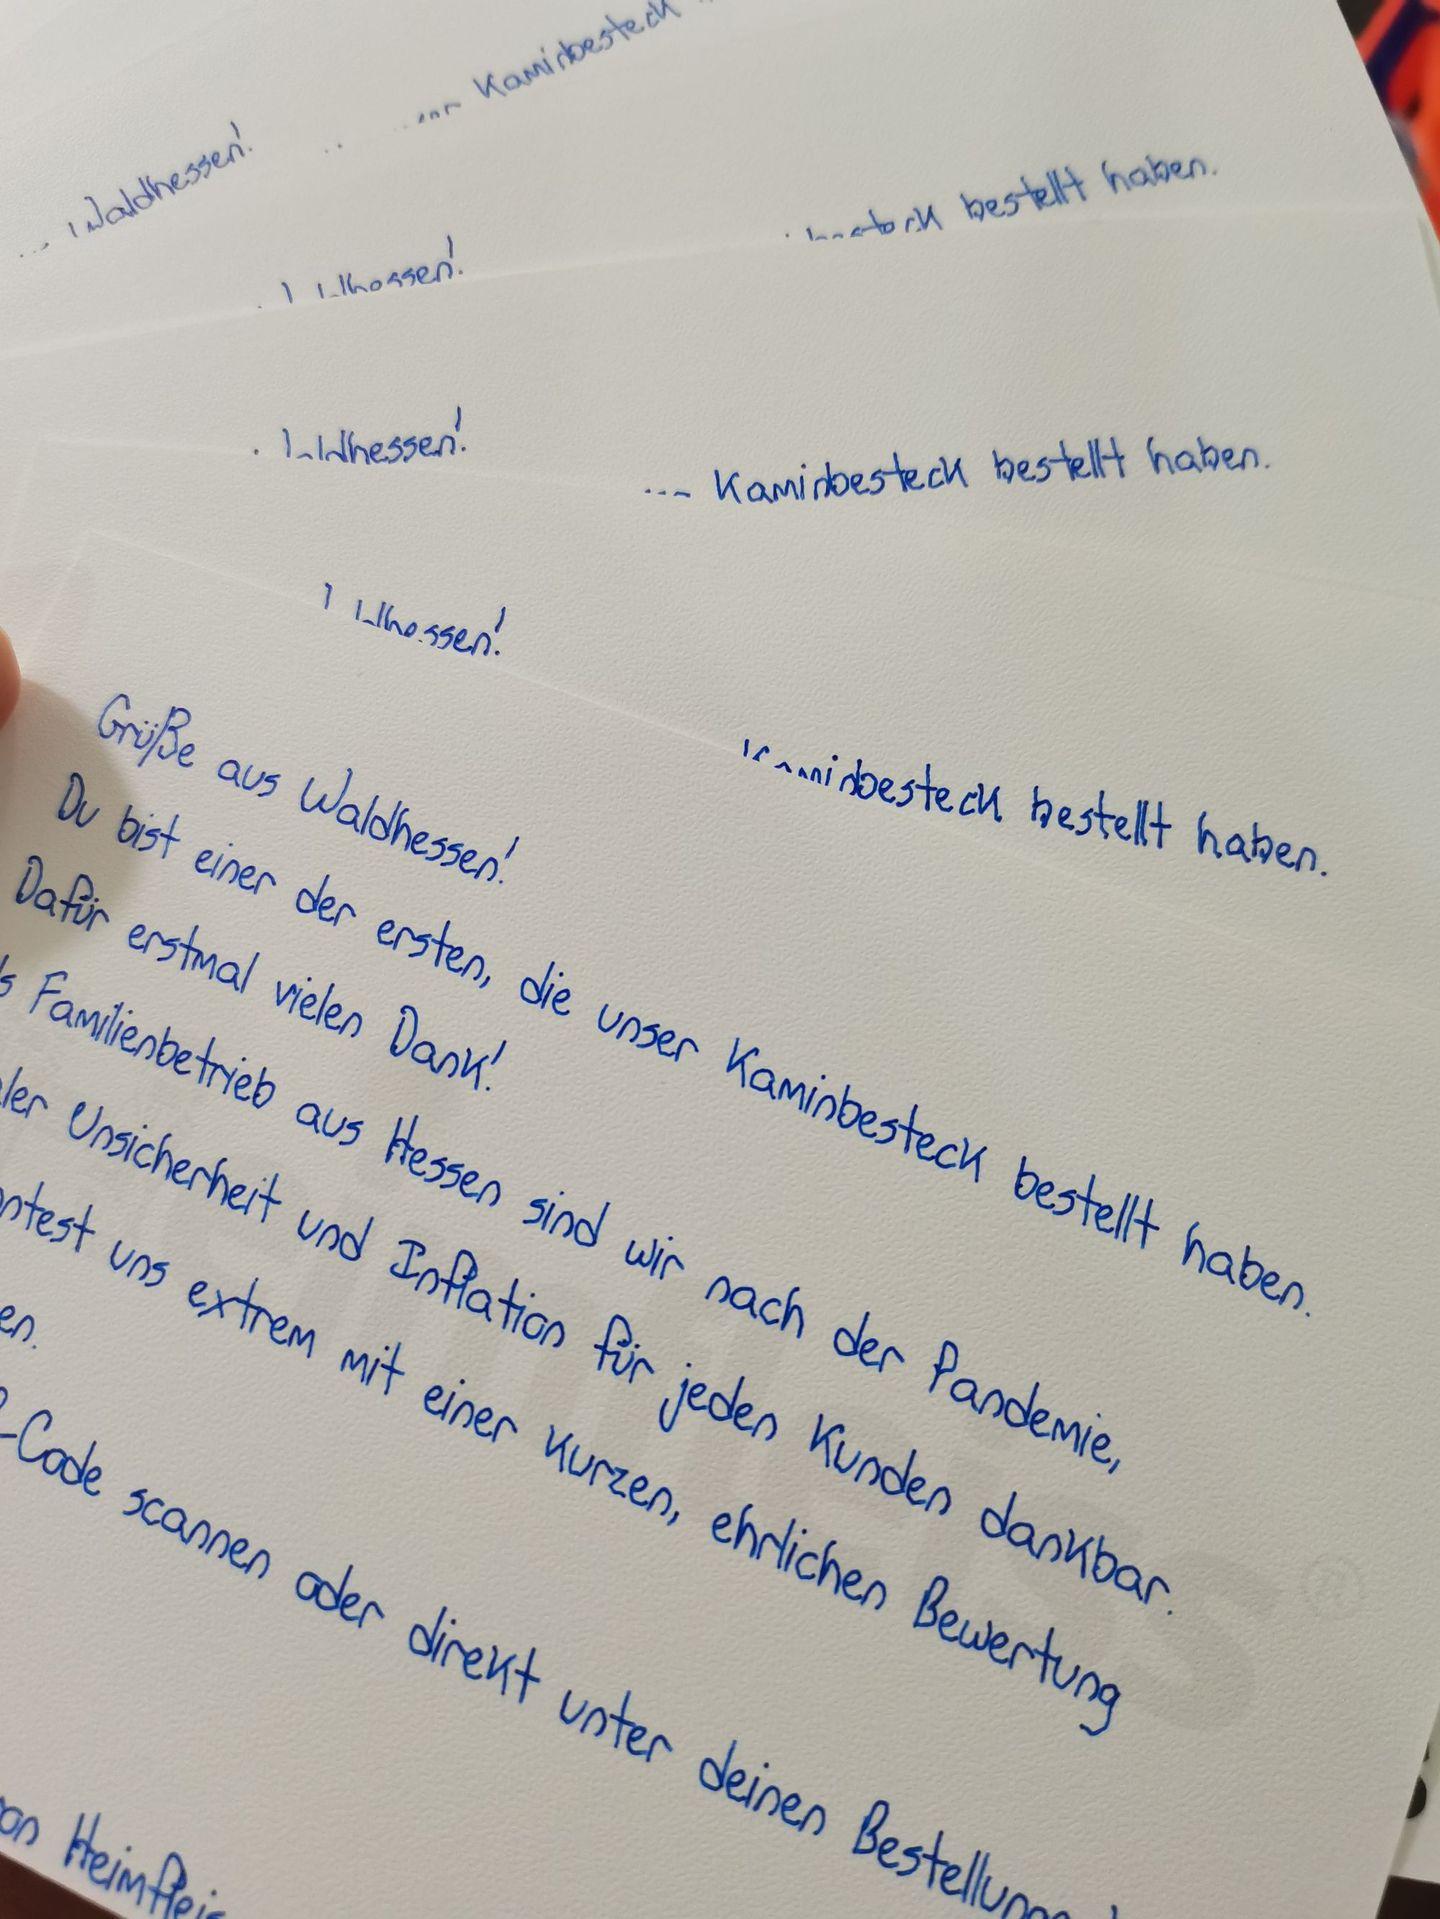 Kaminbesteck
Waldhessen!
bestellt haben.
Kaminbesteck bestellt haben.
Kaminbesteck bestellt haben.
Grüße aus Waldhessen!
Du bist einer der ersten, die unser Kaminbesteck bestellt haben.
Dafür erstmal vielen Dank!
s Familienbetrieb aus Hessen sind wir nach der Pandemie,
ler Unsicherheit und Inflation für jeden Kunden dankbar.
ntest uns extrem mit einer kurzen, ehrlichen Bewertung
en.
-Code scannen oder direkt unter deinen Bestellungen
on Heimfleis